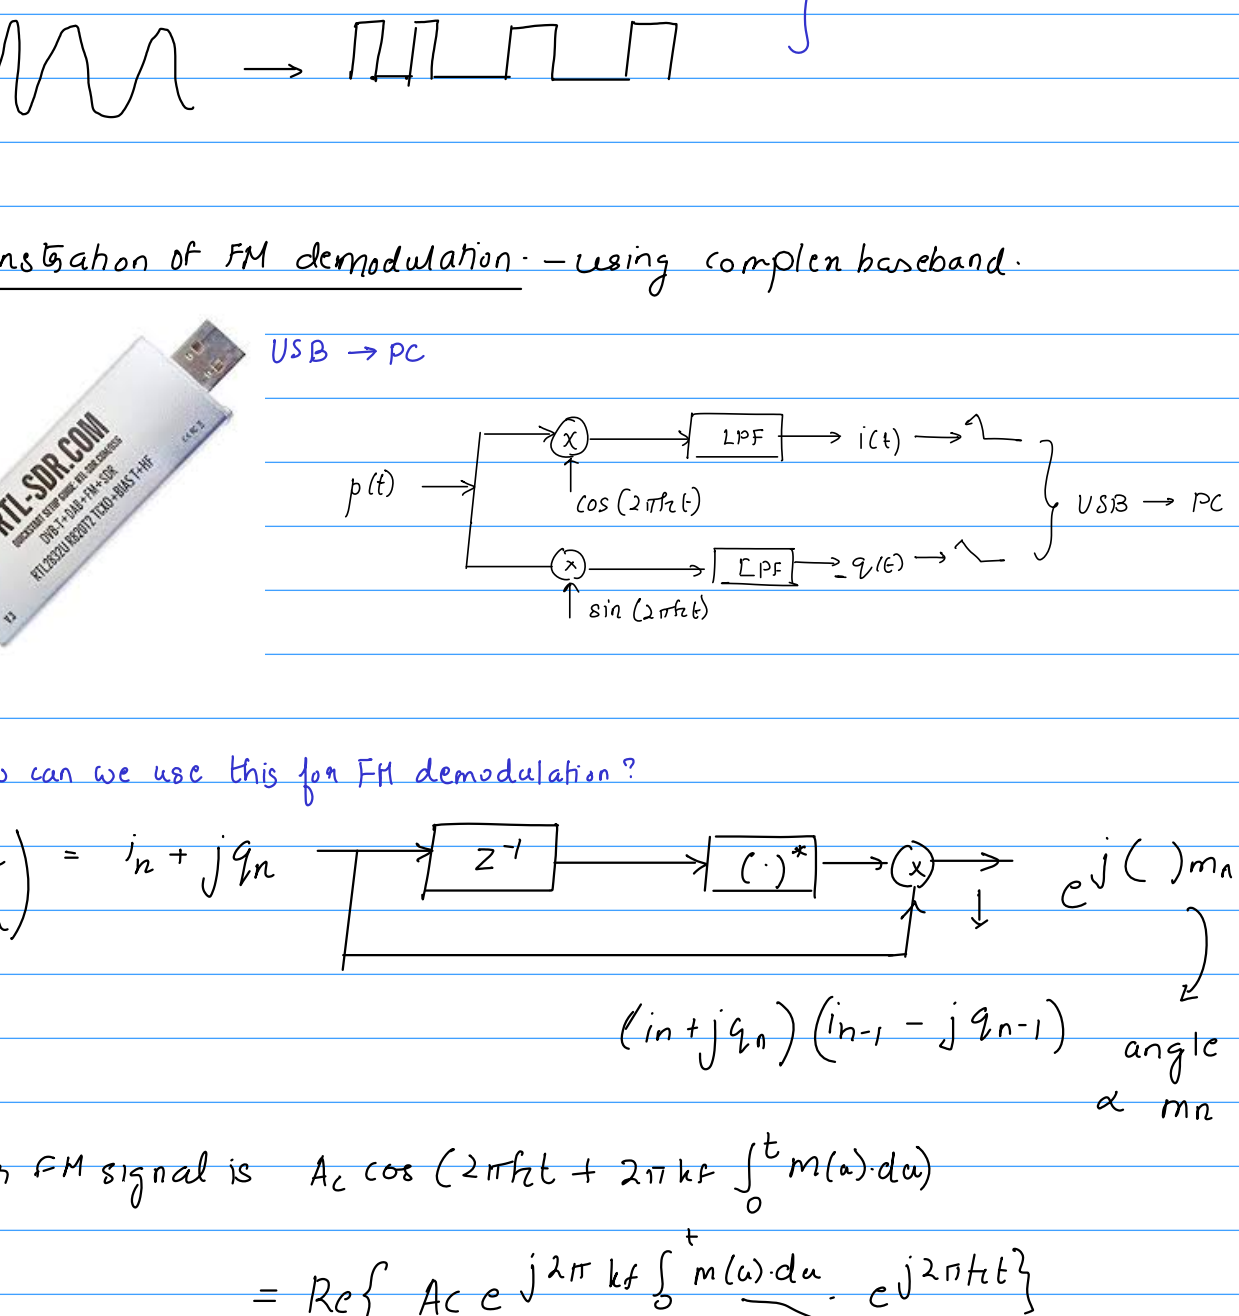 nstration of FM demodulation. – using complex baseband.
USB → PC
RTL-SDR.COM
QUICKSTART SETUP GUIDE: RTL-SDR.COM/QSG
DVB-T+DAB+FM+SDR
RTL2832U R820T2 TCXO+BIAS T+HF
V3
p(t) → x → LPF → i(t) →
cos (2πfct)
USB → PC
x → LPF → – q(t) →
sin (2πfct)
can we use this for FM demodulation?
) = in + jqn → z⁻¹ → (·)* → x → e^j( )mn
(in + jqn) (in-1 – jqn-1)
angle
∝ mn
FM signal is Ac cos (2πfct + 2π kf ∫₀ᵗ m(u)·du)
= Re{ Ac e^j2π kf ∫₀ᵗ m(u)·du · e^j2πfct}